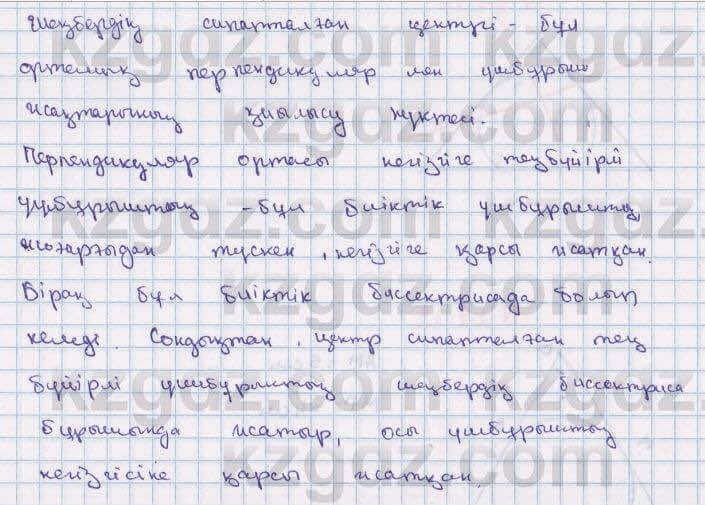 Шеңбердің сипатталған центрі - бұл
орталық перпендикуляр мен үшбұрыш
жақтарының қиылысу нүктесі.
Перпендикуляр ортасы негізіге теңбүйірлі
үшбұрыштың - бұл биіктік үшбұрыштың
жоғарғыдан түскен, негізгіге қарсы жатқан.
Бірақ бұл биіктік биссектрисада болып
келеді. Сондықтан, центр сипатталған тең
бүйірлі үшбұрыштың шеңбердің биссектриса
бұрышында жатыр, осы үшбұрыштың
негізгісіне қарсы жатқан.
kzgdz.com